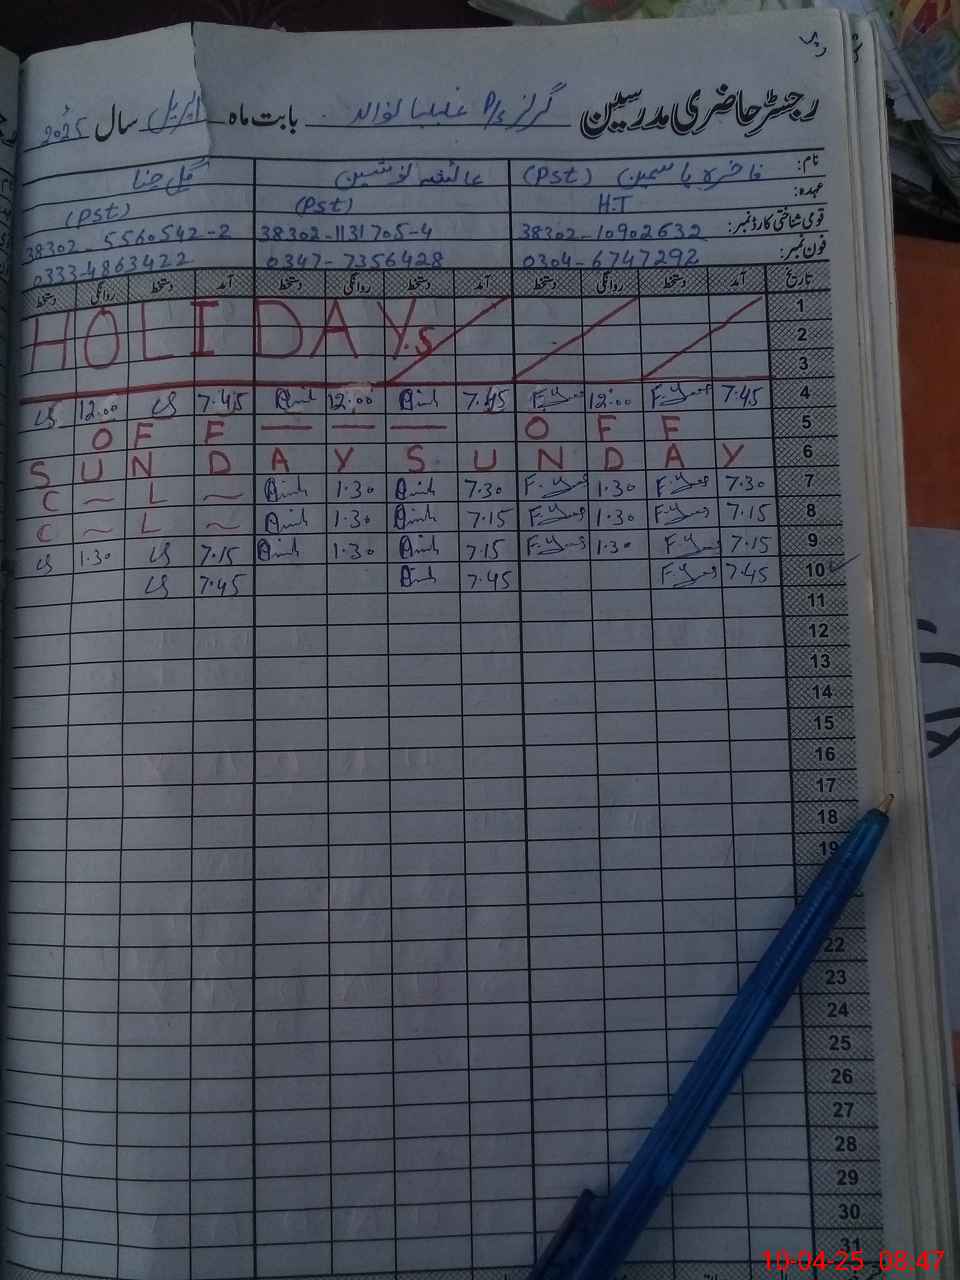 رجسٹر حاضری مدرسین گرلز P/S بابت ماہ اپریل سال 2025ء
نام: فاخرہ یاسمین (PST) عائشہ نوشین گل حنا
عہدہ: H.T (PST) (PST)
قومی شناختی کارڈ نمبر: 38302-10902632 38302-1131705-4 38302-5560542-2
فون نمبر: 0304-6747292 0347-7356428 0333-4863422
تاریخ آمد دستخط روانگی دستخط آمد دستخط روانگی دستخط آمد دستخط روانگی دستخط
1
HOLIDAY.S 2
3
12:00 7.45 12:00 7.45 12:00 7.45 4
OFF OFF 5
SUNDAY SUNDAY 6
C L 1.30 7.30 F.Yas 1.30 F.Yas 7.30 7
C L 1.30 7.15 F.Yas 1.30 F.Yas 7.15 8
1.30 7.15 1.30 7.15 F.Yas 1.30 F.Yas 7.15 9
7.45 7.45 F.Yas 7.45 10
11
12
13
14
15
16
17
18
19
22
23
24
25
26
27
28
29
30
31
10-04-25 08:47